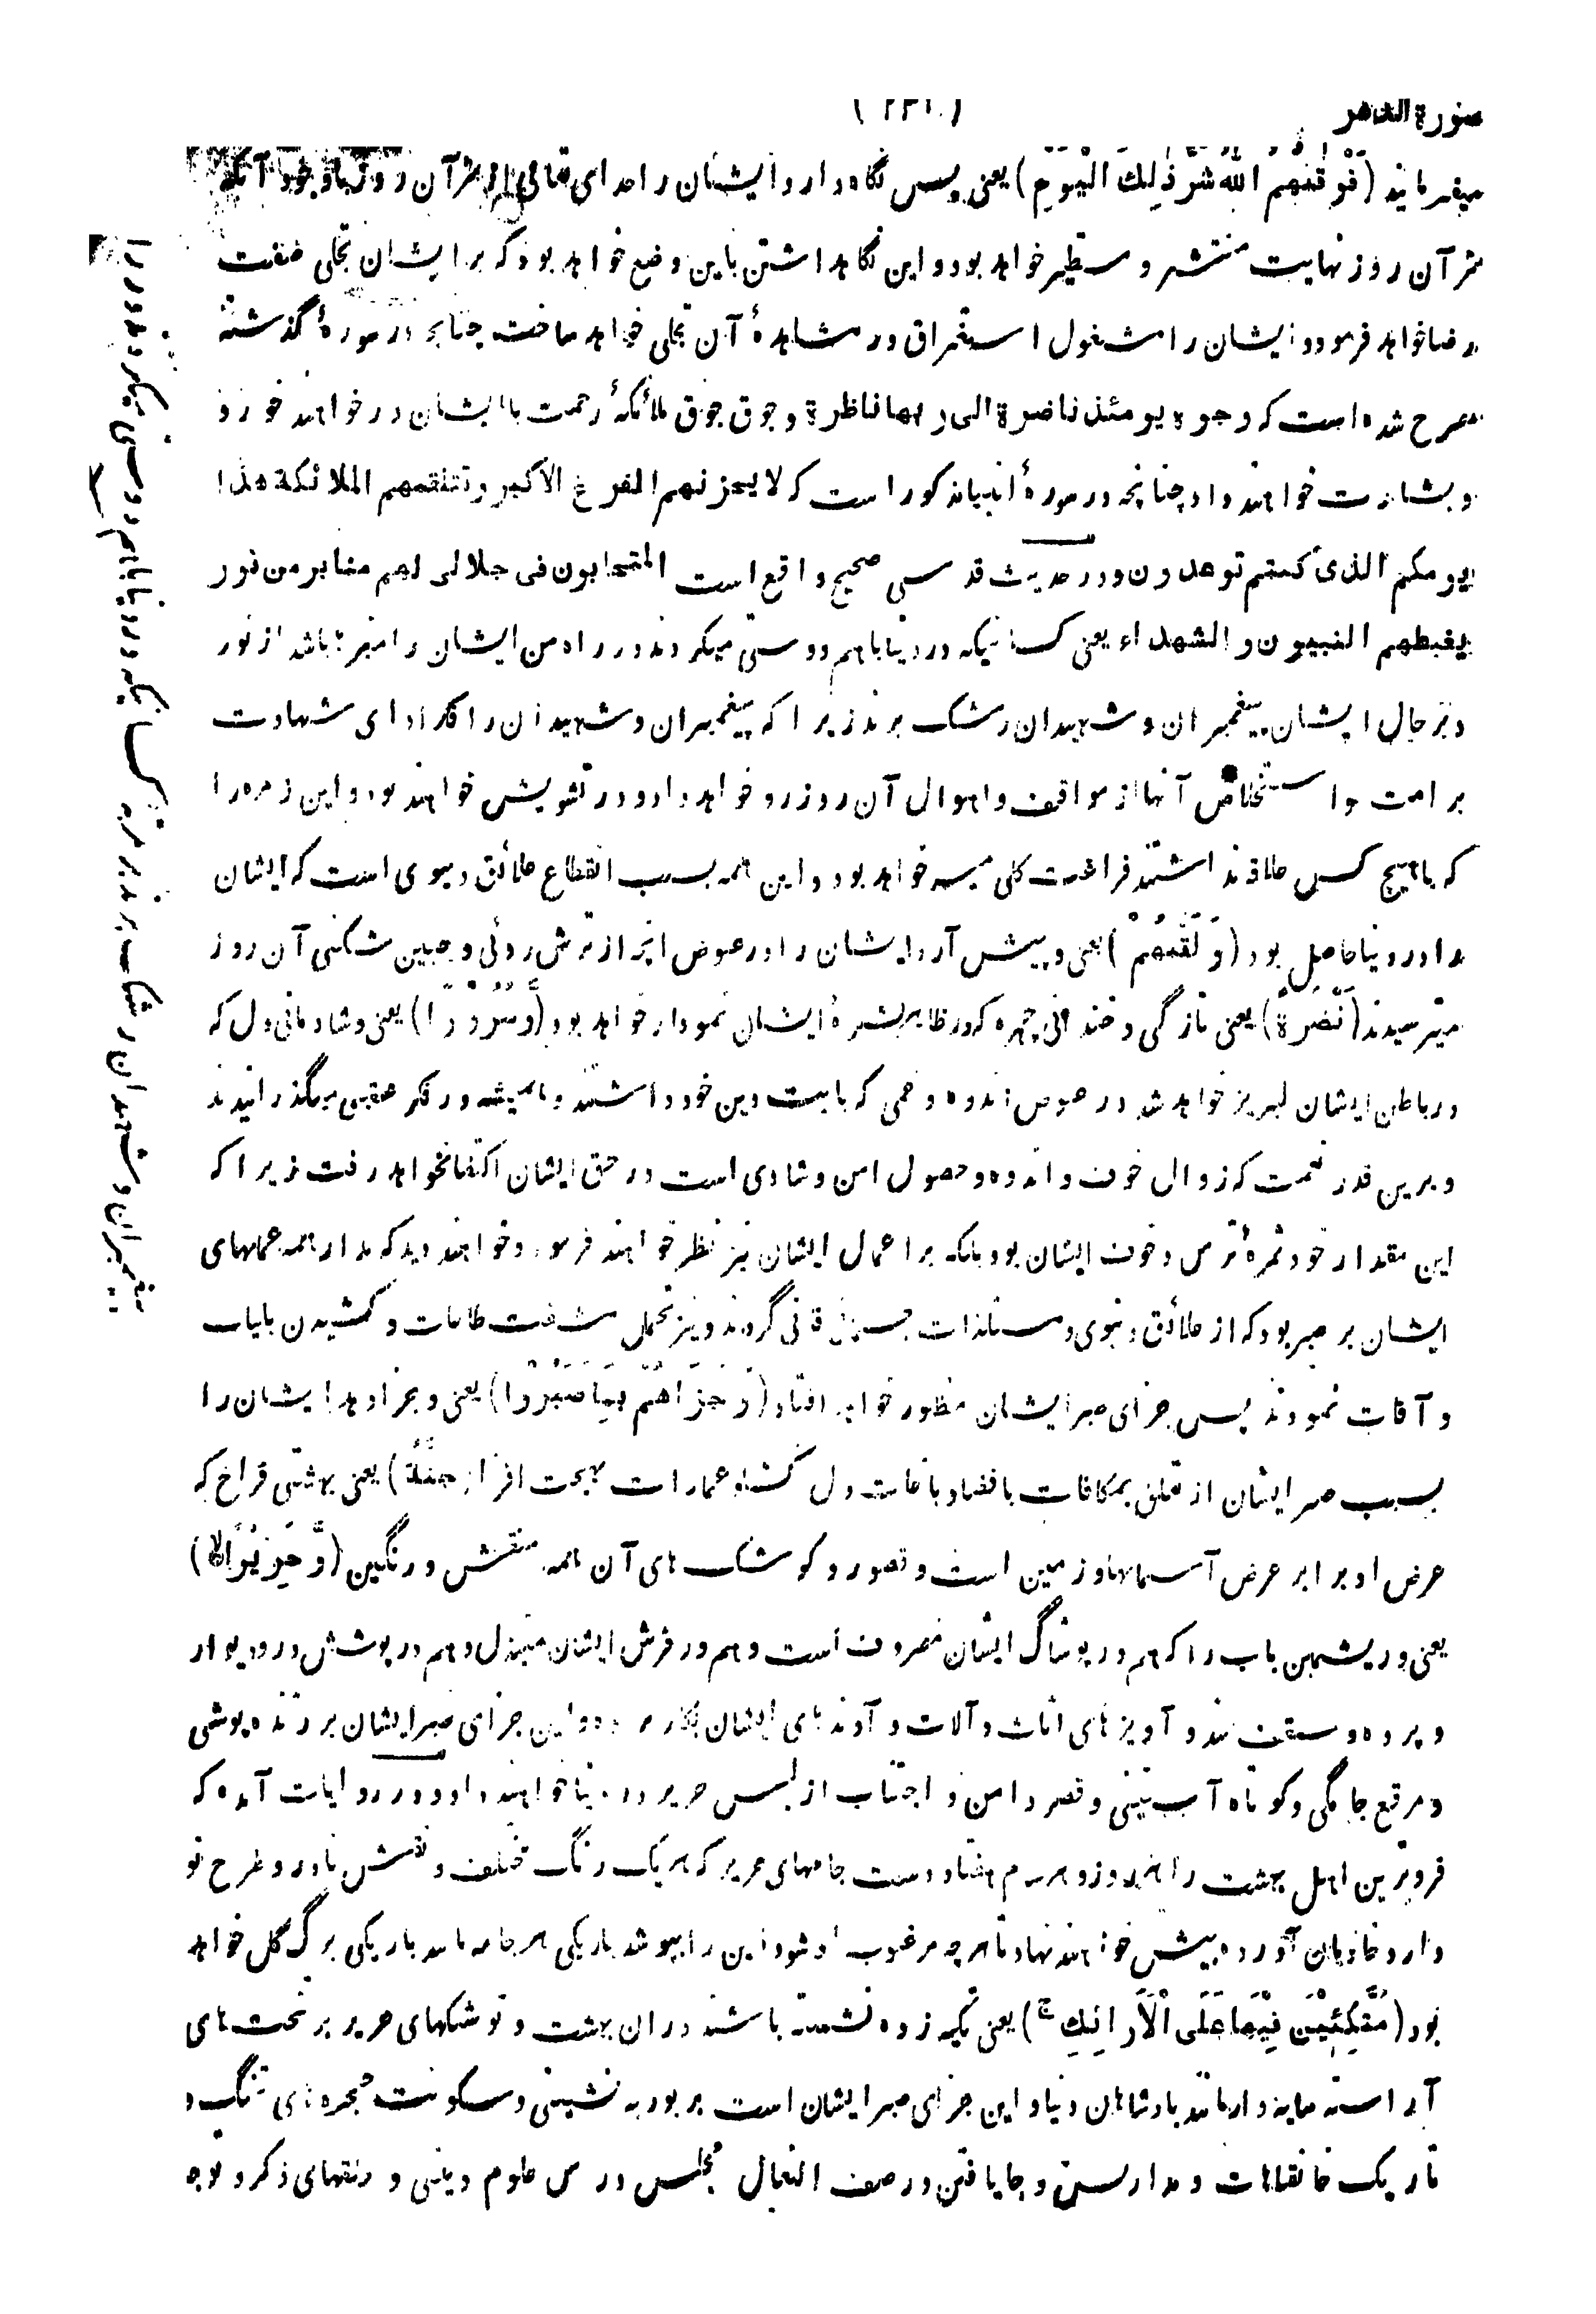 سورة الدهر
(۲۳۱)
میفرمایند (فَوَقٰىهُمُ اللّٰهُ شَرَّ ذٰلِكَ الْيَوْمِ) یعنی پس نگاه دارد ایشان را خدای تعالی از شر آن روز باوجود آنکه
شر آن روز نهایت منتشر و مستطیر خواهد بود و این نگاهداشتن باین وضع خواهد بود که بر ایشان تجلی صفت
رضا خواهد فرمود و ایشان را مشغول استغراق در مشاهدهٔ آن تجلی خواهد ساخت چنانچه در سورهٔ گذشته
مصرح شده است که وجوه یومئذ ناضرة الی ربها ناظرة و جوق جوق ملائکهٔ رحمت با ایشان در خواهند خورد
و بشارت خواهند داد چنانچه در سورهٔ انبیا مذکور است که لا یحزنهم الفزع الاکبر و تتلقٰهم الملائکة هذا
یومکم الذی کنتم توعدون و در حدیث قدسی صحیح واقع است المتحابون فی جلالی لهم منابر من نور
یغبطهم النبیون و الشهداء یعنی کسانیکه در دنیا باهم دوستی میکردند در راه من ایشان را منبرها باشد از نور
و بر حال ایشان پیغمبران و شهیدان رشک برند زیرا که پیغمبران و شهیدان را فکر ادای شهادت
بر امت و استخلاص آنها از مواقف و اهوال آن روز رو خواهد داد و در تشویش خواهند بود و این زمره را
که با هیچ کس علاقه نداشتند فراغت کلی میسر خواهد بود و این همه بسبب انقطاع علائق دنیوی است که ایشان
را در دنیا حاصل بود (وَ لَقّٰىهُمْ) یعنی و پیش آرد ایشان را در عوض انچه از ترش روئی و جبین شکنی آن روز
میترسیدند (نَضْرَةً) یعنی تازگی و خندانی چهره که در ظاهر بشرهٔ ایشان نمودار خواهد بود (وَّ سُرُوْرًا) یعنی و شادمانی دل که
در باطن ایشان لبریز خواهد شد در عوض اندوه و غمی که بابت دین خود داشتند و همیشه در فکر عقبی میگذرانیدند
و برین قدر نعمت که زوال خوف و اندوه و حصول امن و شادی است در حق ایشان اکتفا نخواهد رفت زیرا که
این مقدار خود ثمرهٔ ترس و خوف ایشان بود بلکه بر اعمال ایشان نیز نظر خواهند فرمود و خواهند دید که مدار همه عملهای
ایشان بر صبر بود که از علائق دنیوی و مستلذات فانی گردند و نیز تحمل مشقت طاعات و کشیدن بلیات
و آفات نمودند پس جزای صبر ایشان منظور خواهد افتاد (وَ جَزٰاهُمْ بِمَا صَبَرُوْا) یعنی و جزا دهد ایشان را
بسبب صبر ایشان از بمکافات با فضا و باغات دل کشا و عمارات بهجت افزا (جَنَّةً) یعنی بهشتی فراخ که
عرض او برابر عرض آسمانها و زمین است و قصور و کوشک های آن همه منقش و رنگین (وَّ حَرِيْرًا)
یعنی و ریشمین باب را که هم در پوشاک ایشان مصروف است و هم در فرش ایشان مبتذل و هم در پوشش در و دیوار
و پرده و سقف مسند و آویزهای اثاث و آلات و آوندهای ایشان بکار برده و این جزای صبر ایشان بر ژنده پوشی
و مرقع جامگی و کوتاه آستینی و قصر دامن و اجتناب از لبس حریر در دنیا خواهند داد و در روایات آمده که
فروترین اهل بهشت را هر روز هفتاد دست جامهای حریر که هر یک رنگ مختلف و نقش نادر و طرح نو
دارد خادمان آورده پیش خواهند نهاد تا هرچه مرغوب او شود این را بپوشد باریکی هر جامه مانند باریکی برگ گل خواهد
بود (مُتَّكِئِيْنَ فِيْهَا عَلَى الْاَرَائِكِ ج) یعنی تکیه زده نشسته باشند در ان بهشت و توشکهای حریر بر تخت های
آراسته سایه دار مانند بادشاهان دنیا و این جزای صبر ایشان است بر بوریه نشینی و سکونت حجره های تنگ و
تاریک خانقاهات و مدارس و جا یافتن در صف النعال مجلس درس علوم دینی و حلقهای ذکر و توجه
کسانیکه در دنیا باهم دوستی میکردند را پیغمبران و شهیدان رشک برند